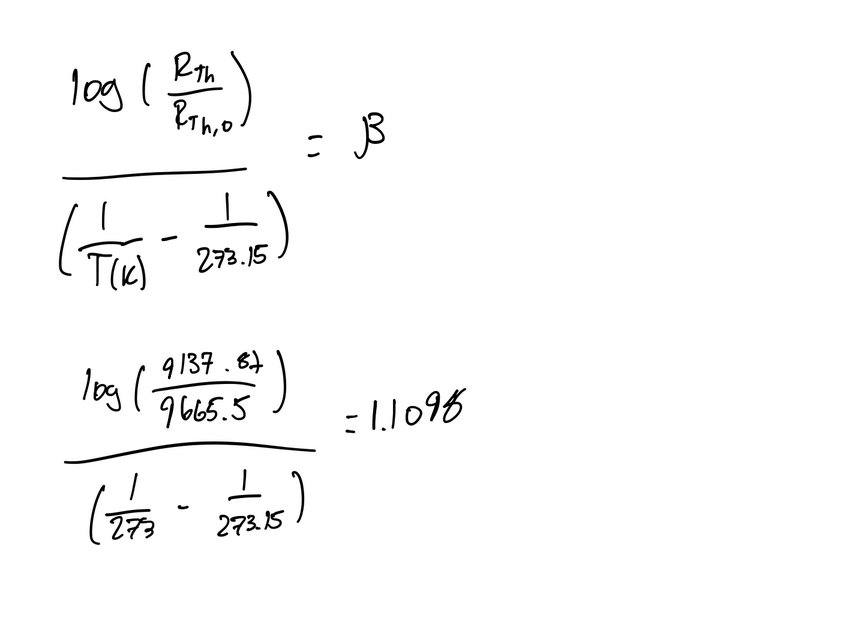 log ( R_Th / R_Th,0 ) / ( 1 / T(K) - 1 / 273.15 ) = β
log ( 9137.87 / 9665.5 ) / ( 1 / 273 - 1 / 273.15 ) =